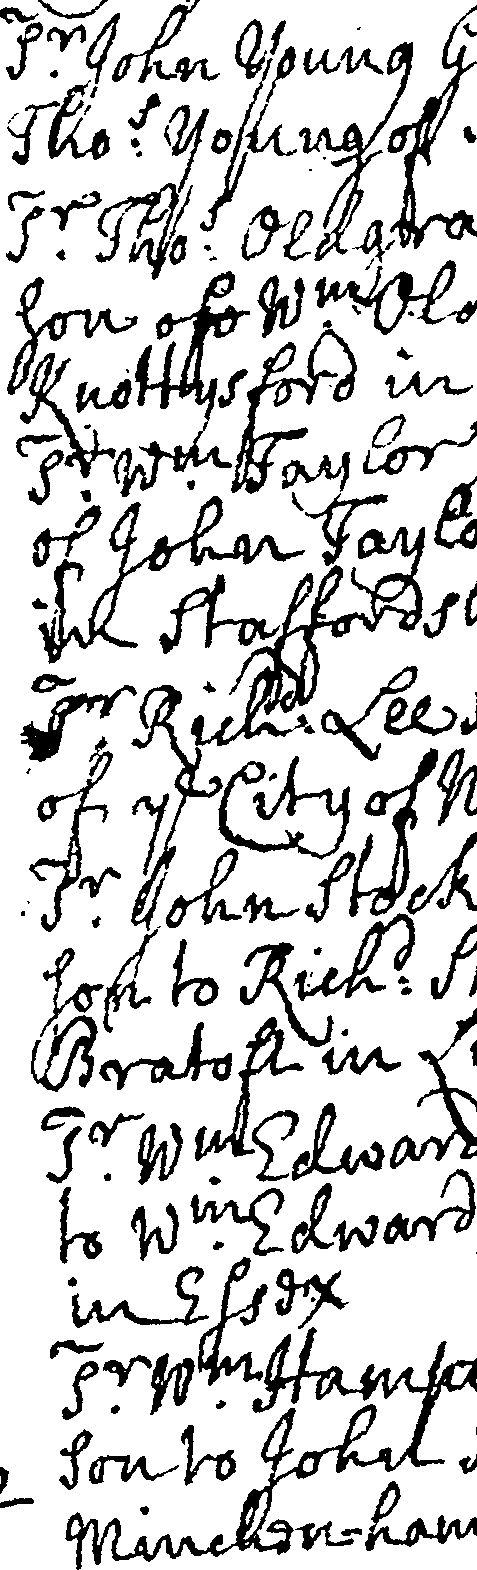 Sr. John Young G
Thos. Young of
Sr. Thos. Oldgra
Son of Wm. Old
Knottysford in
Sr. Wm. Taylor
of John Taylo
in Staffordsh
Sr. Richd. Lee
of ye City of
Sr. John Stock
Son to Richd. St
Bratoft in Li
Sr. Wm. Edward
to Wm. Edward
in Essex
Sr. Wm. Hamp
Son to John
Minchen-ham